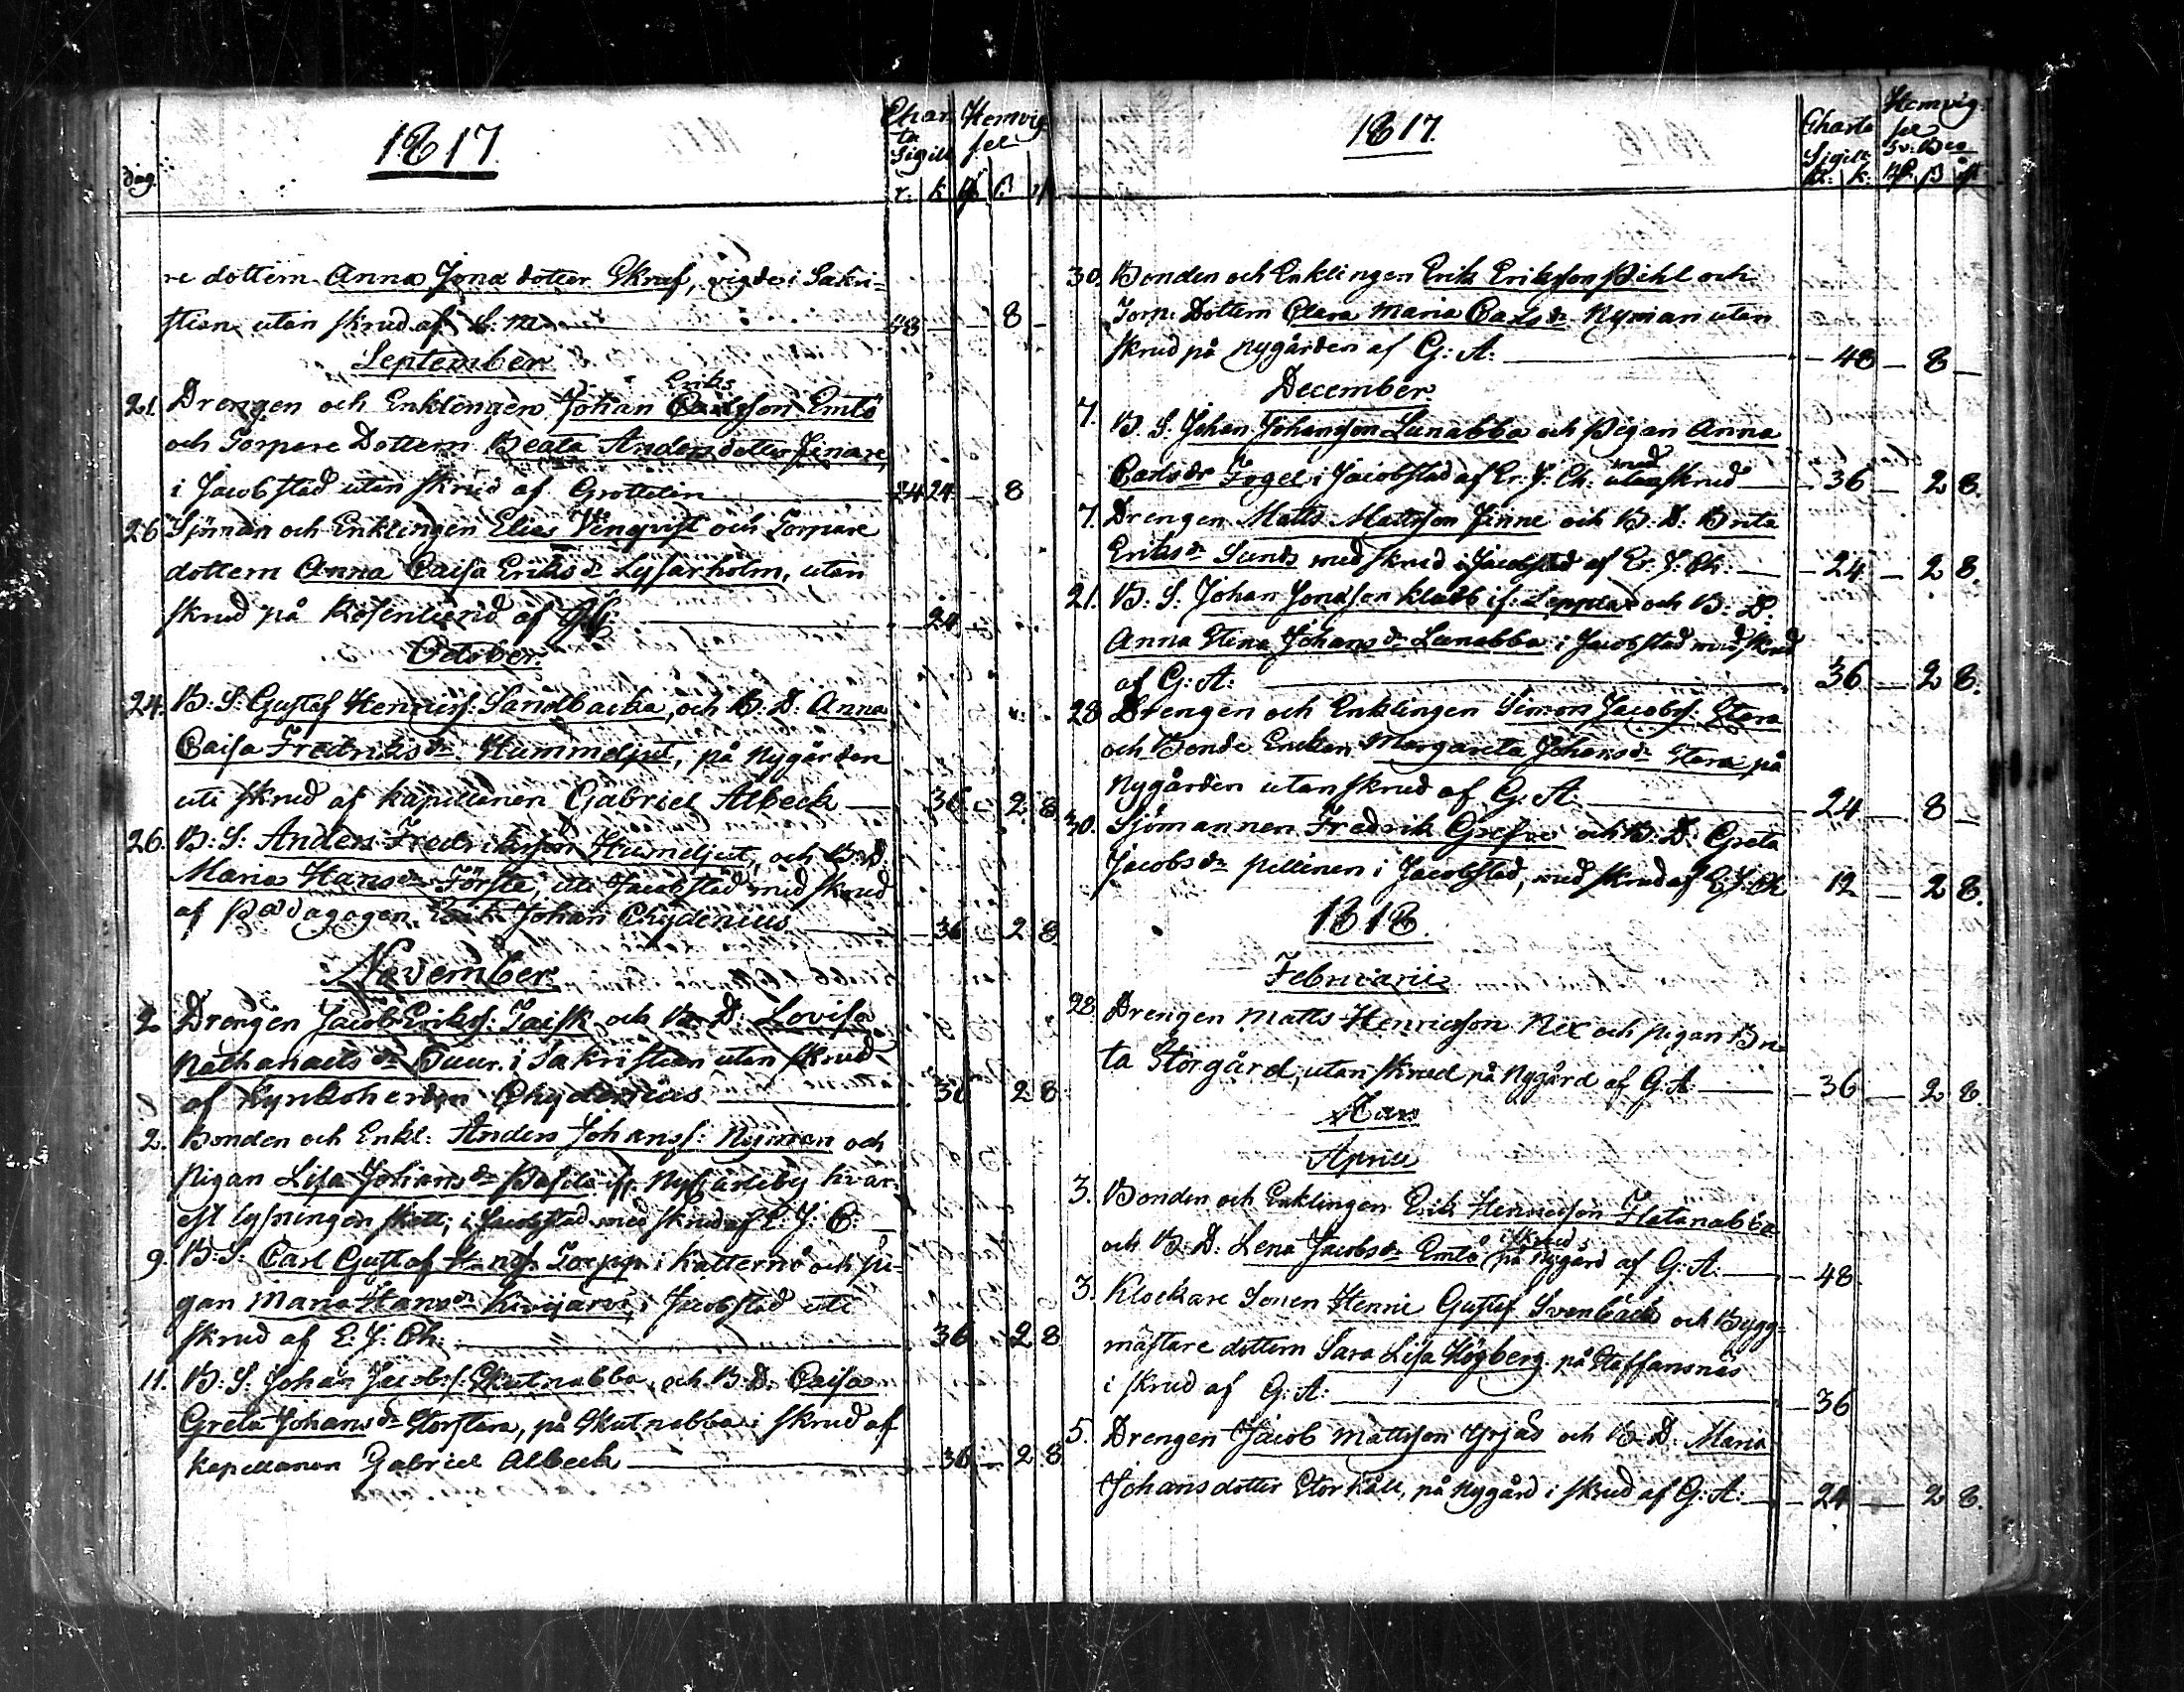 1817.
dag.
Char
ta
Sigill
Hemvig
sel
r. k
re dottern Anna Jona dotter Skruf, vigde i Sakri-
stian utan skrud af L. M. 48 — 8 —
September
Eriks
21. Drengen och Enklingen Johan Carlsson Emlö
och Torpare Dottern Beata Anders dotter Finare,
i Jacobstad utan skrud af Grottelin 24 — 8
26 Sjöman och Enklingen Elias Vinqvist och Torpare
dottern Anna Caisa Eriks dr Lysarholm, utan
skrud på Rosenlund af 24
October.
24. B: S: Gustaf Henricss: Sandbacka, och B: D: Anna
Caisa Fredriks dr Hummeljut, på Nygården
uti skrud af kapellanen Gabriel Albeck — 36 — 2 8
26. B: S: Anders Fredriksson Humeljut, och B: D:
Maria Hans dr Förste, uti Jacobstad med skrud
af Pædagogen Erik Johan Chydenius — 36 2 8
November
2 Drengen Jacob Erikss: Taisk och B: D: Lovisa
Nathanaels dr Buur. i Sakristian utan skrud
af Kyrkoherden Chydenius — 36 2 8
2. Bonden och Enkl: Anders Johanss: Nyman och
Pigan Lisa Johans dr ifr. Nykarleby hvar-
est lysningen skett, i Jacobstad med skrud af E. J. C. —
9. B: S: Carl Gustaf Torpp i Katternö och Pi-
gan Maria Hans dr Kivijärvi, i Jacobstad uti
skrud af E. J. Ch. — 36 2 8
11. B: S: Johan Jacobs: Skutnabba, och B: D: Caisa
Greta Johans dr Storstara, på Skutnabba i skrud af
kapellanen Gabriel Albeck — 36 — 2 8
1817.
Charta
Sigill
R: k:
Hemvig
sel
30. Bonden och Enklingen Erik Eriksson Pihl och
Torp: Dottern Clara Maria Carls dr Nyman utan
skrud på Nygården af G: A: — 48 — 8 —
December
7. B. S. Johan Johansson Lunabba och Pigan Anna
med
Carls dr Fogel i Jacobstad af Er. J: Ch: utan skrud 36 — 2 8.
7. Drengen Matts Mattsson Finne och B: D: Brita
Eriks dr Sunds med skrud i Jacobstad af Er. J. Ch: — 24 — 2 8.
21. B: S: Johan Jonsson Klubb if: Leppla och B: D:
Anna Stina Johans dr Lunabba i Jacobstad med skrud
af G: A: — 36 — 2 8.
28 Drengen och Enklingen Simon Jacobs: Stara
och Bonde Enckan Margareta Johans dr Stara på
Nygården utan skrud af G. A. — 24 — 8 —
30. Sjömannen Fredrik Grefve och B: D: Greta
Jacobs dr Pellinen i Jacobstad, med skrud af E. J. Ch 12 — 2 8.
1818.
Februarii
28. Drengen Matts Henricsson Rex och Pigan Bri-
ta Storgård, utan skrud på Nygård af G. A — 36 — 2 8.
Mars
April
3. Bonden och Enklingen Erik Henricsson Flatanabba
i skrud
och B: D: Lena Jacobs dr Emlö på Nygård af G: A: — 48
3. Klockare Sonen Henric Gustaf Svenbäck och Bygg-
mästare dottern Sara Lisa Högberg på Staffansnäs
i skrud af G: A: — 36
5. Drengen Jacob Mattsson och B: D: Maria
Johans dotter Storkåll, på Nygård i skrud af G: A: — 24 — 2 8.